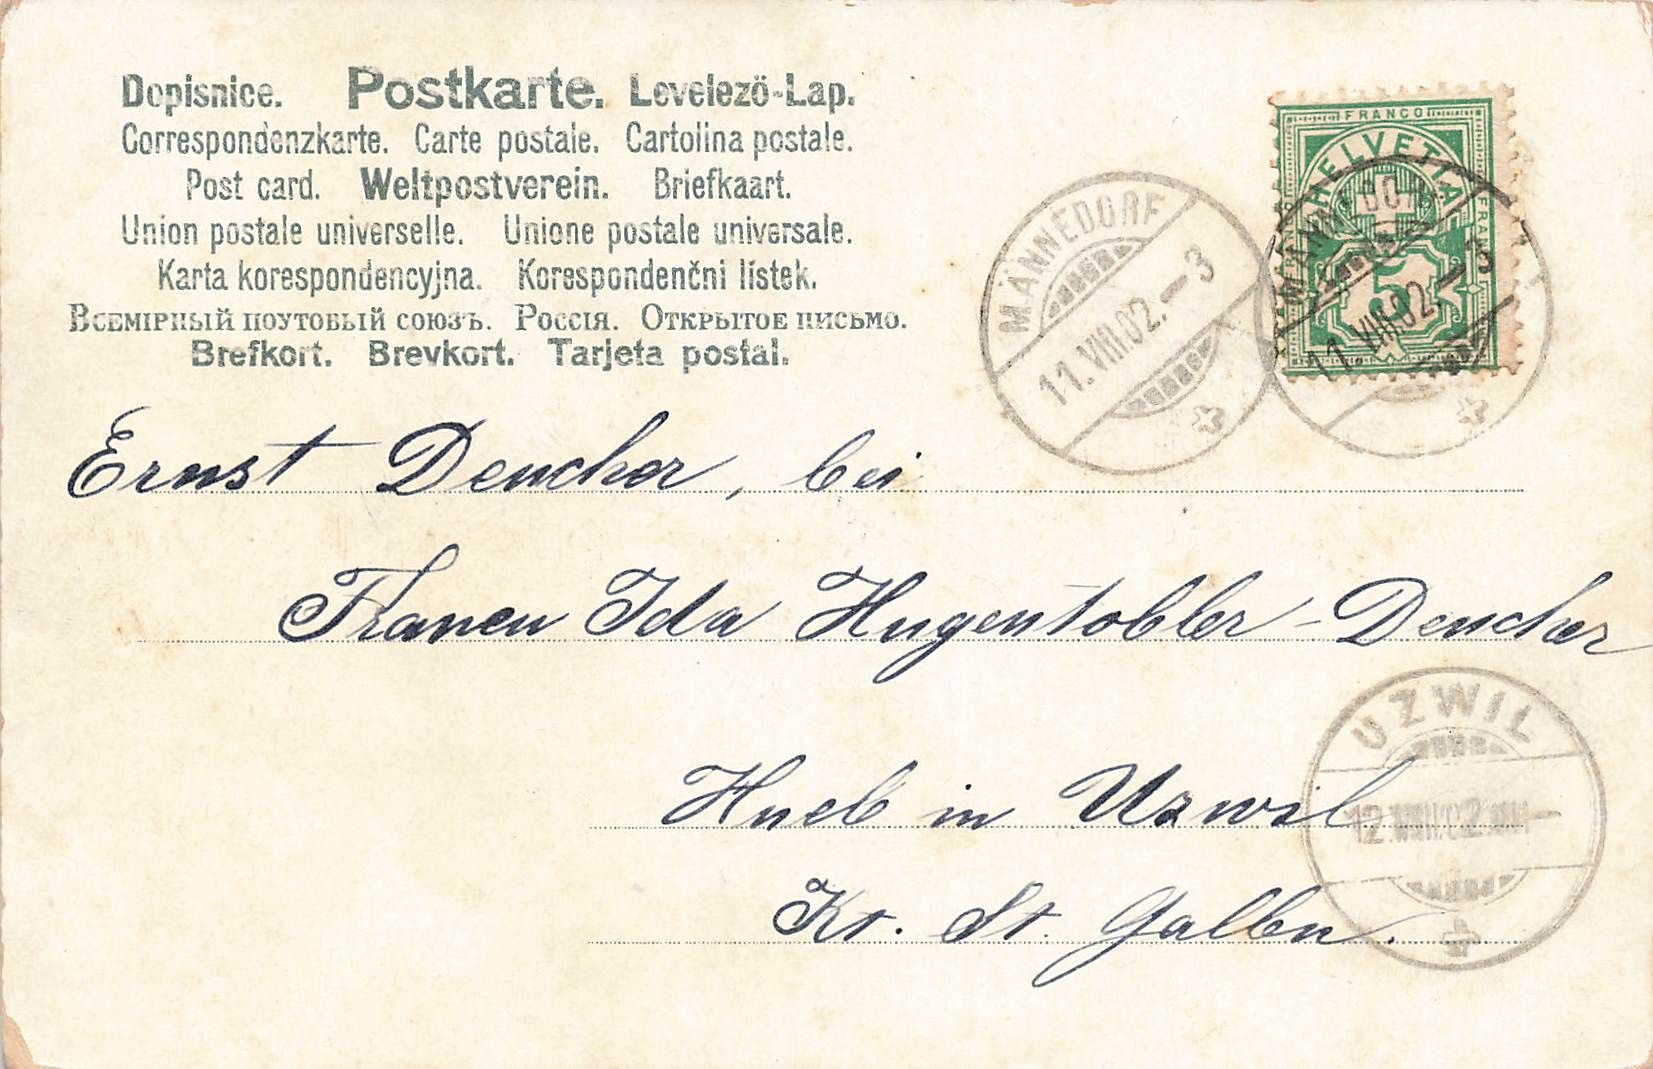 Dopisnice. Postkarte. Levelező-Lap.
Correspondenzkarte. Carte postale. Cartolina postale.
Post card. Weltpostverein. Briefkaart.
Union postale universelle. Unione postale universale.
Karta korespondencyjna. Korespondenčni lístek.
Всемірный поутовый союзъ. Россія. Открытое письмо.
Brefkort. Brevkort. Tarjeta postal.
FRANCO
HELVETIA
5
MÄNNEDORF
11.VIII.02.-3
MÄNNEDORF
11.VIII.02.-3
Ernst Dencher, bei
Frauen Ida Hugentobler-Dencher
Hueb in Uzwil.
Kt. St. Gallen.
UZWIL
12.VIII.02.